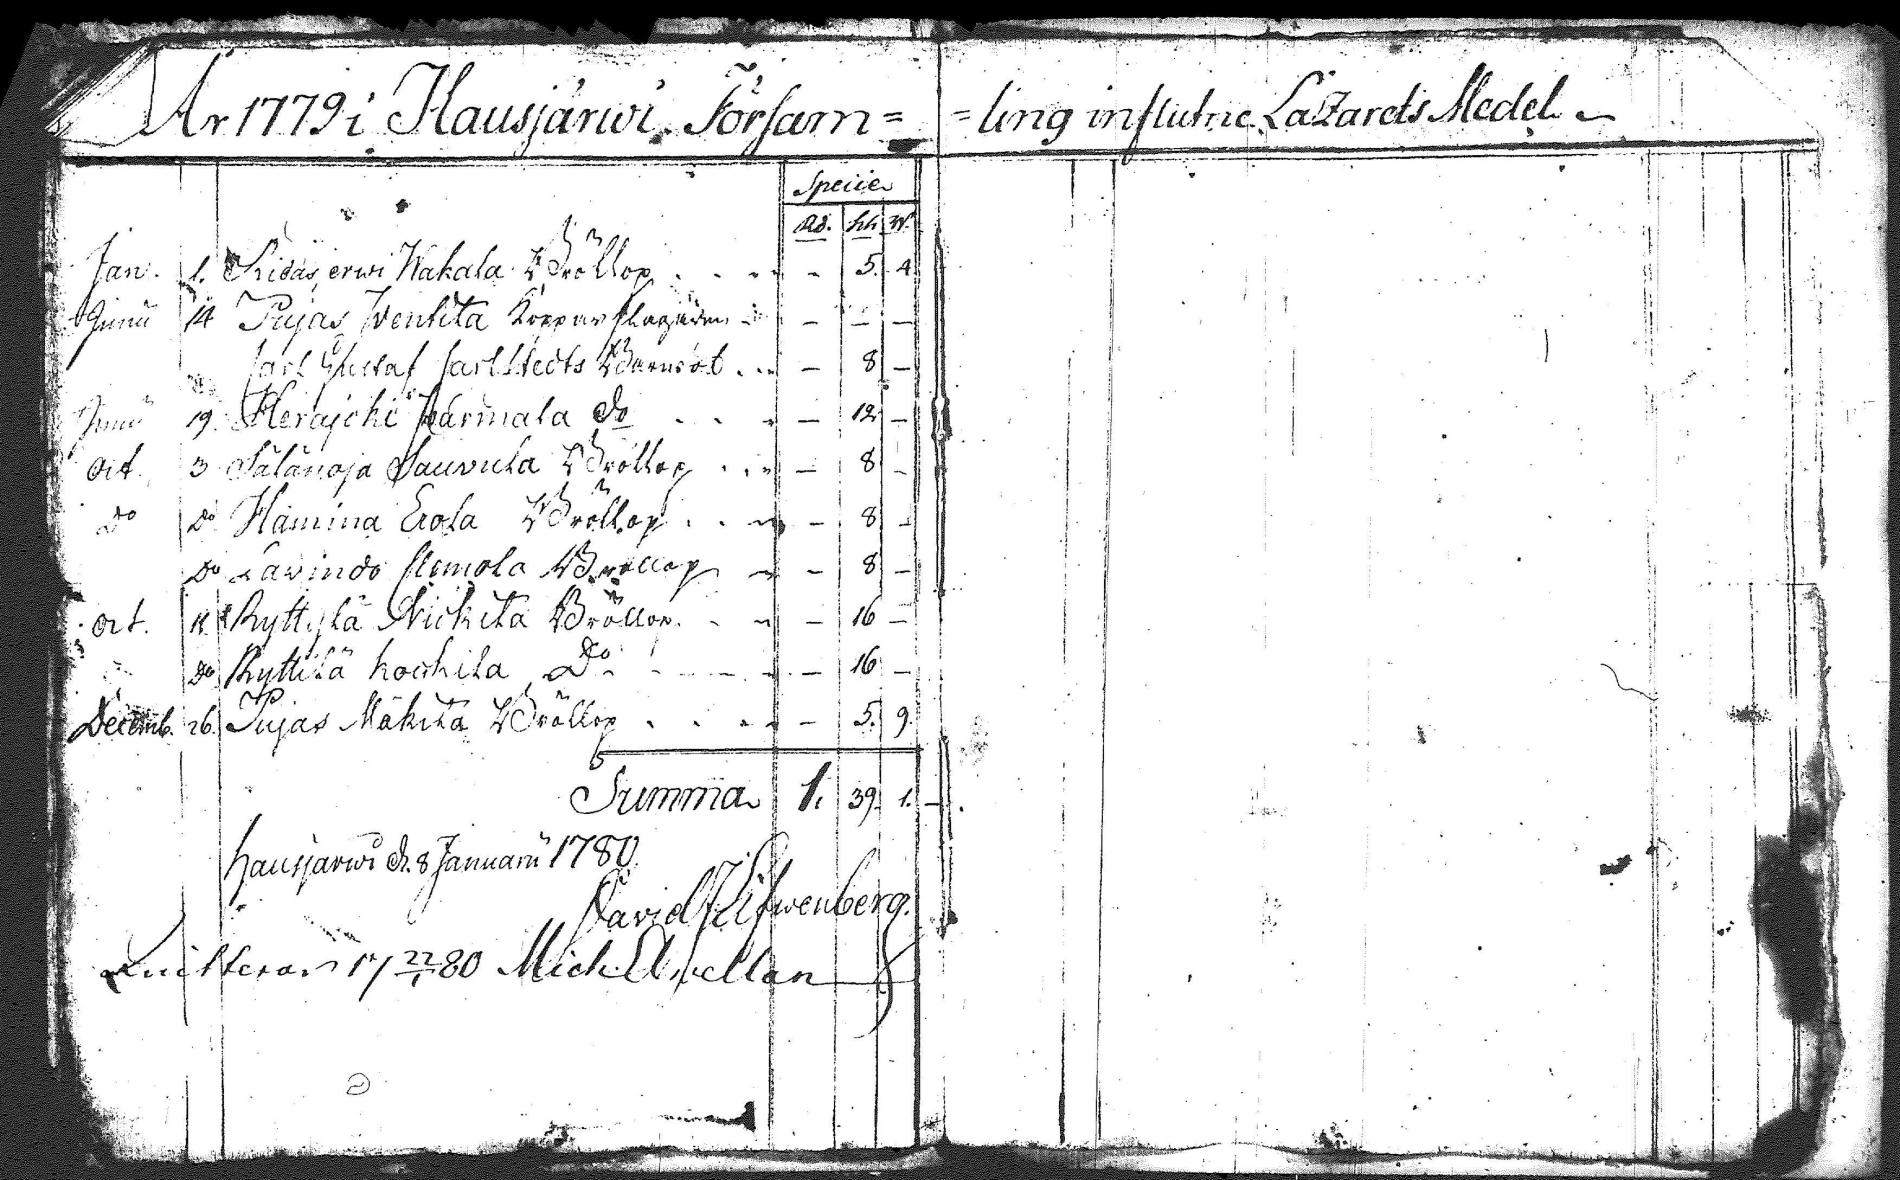 År 1779 i Hausjärwi Församling influtne Lazarets Medel
Specie
Rd. ßk. rst.
Jan. 1. Kidasjerwi Wakala Bröllop - 5. 4
Junii 14 Pujas Wentita Kopparslagaren - - -
Carl Gustaf Carlstedts Barndöl - 8 -
Junii 19. Herajoki Do - 12 -
Oct. 3 Sälänoja Bröllop - 8 -
Do Do Hamina Erola Bröllop - 8 -
Do Lavindo Bröllop - 8 -
Oct. Ryttylä Nickila Bröllop - 16 -
Do Ryttilä Do - 16 -
Decemb. 26. Pujas Mäkilä Bröllop - 5. 9.
Summa 1. 39. 1.
Hausjärwi d. 8 Januarii 1780.
David
Quitteras 17 22/1 80 Mich.